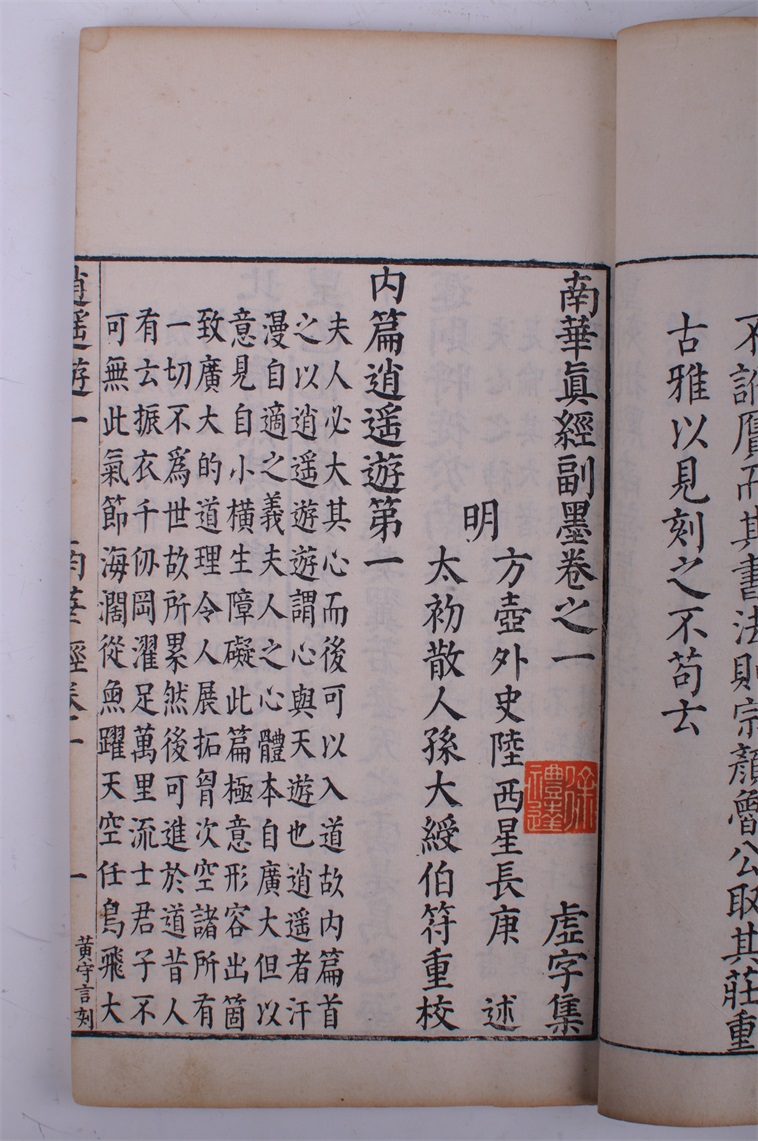 不訛贋而其書法則宗顏魯公取其莊重
古雅以見刻之不苟云
南華眞經副墨卷之一 虛字集
明 方壺外史陸西星長庚 述
太初散人孫大綬伯符重校
內篇逍遥遊第一
夫人必大其心而後可以入道故內篇首
之以逍遥遊遊謂心與天遊也逍遥者汗
漫自適之義夫人之心體本自廣大但以
意見自小橫生障礙此篇極意形容出箇
致廣大的道理令人展拓胷次空諸所有
一切不爲世故所累然後可進於道昔人
有云振衣千仞岡濯足萬里流士君子不
可無此氣節海濶從魚躍天空任鳥飛大
逍遥遊一 南華經卷一 一 黃守言刻
徐禮達